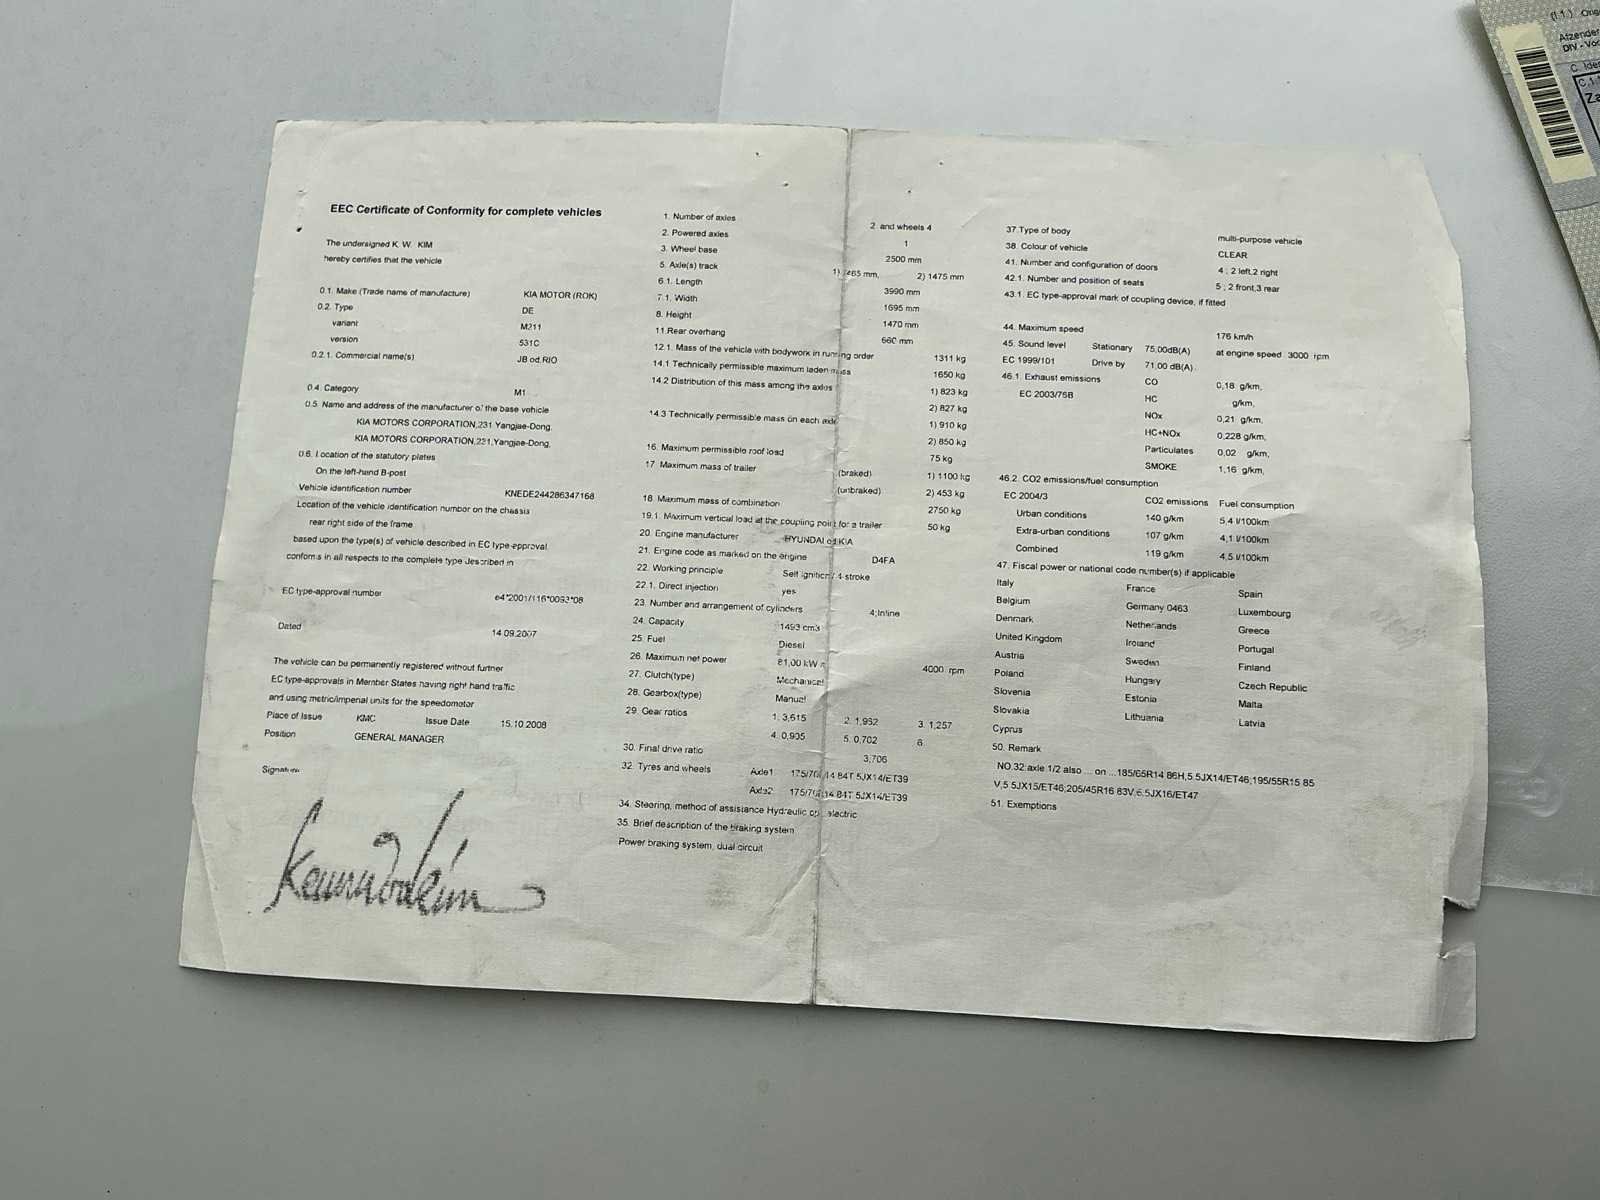 EEC Certificate of Conformity for complete vehicles
The undersigned K. W. KIM
hereby certifies that the vehicle
0.1. Make (Trade name of manufacture) KIA MOTOR (ROK)
0.2. Type DE
variant M211
version 531C
0.2.1. Commercial name(s) JB od.RIO
0.4. Category M1
0.5. Name and address of the manufacturer of the base vehicle
KIA MOTORS CORPORATION,231 Yangjae-Dong,
KIA MOTORS CORPORATION,231,Yangjae-Dong,
0.6. Location of the statutory plates
On the left-hand B-post
Vehicle identification number KNEDE244286347168
Location of the vehicle identification number on the chassis
rear right side of the frame
based upon the type(s) of vehicle described in EC type-approval
conforms in all respects to the complete type described in
EC type-approval number e4*2001/116*0093*08
Dated 14.09.2007
The vehicle can be permanently registered without further
EC type-approvals in Member States having right hand traffic
and using metric/imperial units for the speedometer
Place of Issue KMC Issue Date 15.10.2008
Position GENERAL MANAGER
Signature
1. Number of axles 2 and wheels 4
2. Powered axles 1
3. Wheel base 2500 mm
5. Axle(s) track 1) 1465 mm, 2) 1475 mm
6.1. Length 3990 mm
7.1. Width 1695 mm
8. Height 1470 mm
11.Rear overhang 660 mm
12.1. Mass of the vehicle with bodywork in running order 1311 kg
14.1 Technically permissible maximum laden mass 1650 kg
14.2 Distribution of this mass among the axles 1) 823 kg
2) 827 kg
14.3 Technically permissible mass on each axle 1) 910 kg
2) 850 kg
16. Maximum permissible roof load 75 kg
17. Maximum mass of trailer (braked) 1) 1100 kg
(unbraked) 2) 453 kg
18. Maximum mass of combination 2750 kg
19.1. Maximum vertical load at the coupling point for a trailer 50 kg
20. Engine manufacturer HYUNDAI od KIA
21. Engine code as marked on the engine D4FA
22. Working principle Self ignition/ 4-stroke
22.1. Direct injection yes
23. Number and arrangement of cylinders 4;Inline
24. Capacity 1493 cm3
25. Fuel Diesel
26. Maximum net power 81,00 kW 4000 rpm
27. Clutch(type) Mechanical
28. Gearbox(type) Manual
29. Gear ratios 1. 3,615 2. 1,962 3. 1,257
4. 0,905 5. 0,702 6.
30. Final drive ratio 3,706
32. Tyres and wheels Axle1 175/70 14 84T 5JX14/ET39
Axle2 175/70 14 84T 5JX14/ET39
34. Steering, method of assistance Hydraulic od. electric
35. Brief description of the braking system
Power braking system, dual circuit
37.Type of body multi-purpose vehicle
38. Colour of vehicle CLEAR
41. Number and configuration of doors 4 ; 2 left,2 right
42.1. Number and position of seats 5 ; 2 front,3 rear
43.1. EC type-approval mark of coupling device, if fitted
44. Maximum speed 176 km/h
45. Sound level Stationary 75,00dB(A) at engine speed 3000 rpm
EC 1999/101 Drive by 71,00 dB(A).
46.1. Exhaust emissions CO 0,18 g/km,
EC 2003/76B HC g/km,
NOx 0,21 g/km,
HC+NOx 0,228 g/km,
Particulates 0,02 g/km,
SMOKE 1,16 g/km,
46.2. CO2 emissions/fuel consumption
EC 2004/3 CO2 emissions Fuel consumption
Urban conditions 140 g/km 5,4 l/100km
Extra-urban conditions 107 g/km 4,1 l/100km
Combined 119 g/km 4,5 l/100km
47. Fiscal power or national code number(s) if applicable
Italy France Spain
Belgium Germany 0463 Luxembourg
Denmark Netherlands Greece
United Kingdom Ireland Portugal
Austria Sweden Finland
Poland Hungary Czech Republic
Slovenia Estonia Malta
Slovakia Lithuania Latvia
Cyprus
50. Remark
NO.32:axle 1/2 also ... on ...185/65R14 86H,5.5JX14/ET46;195/55R15 85
V,5.5JX15/ET46;205/45R16 83V,6.5JX16/ET47
51. Exemptions
(I.1.)
Afzender
DIV -
C.
C.1.
Za